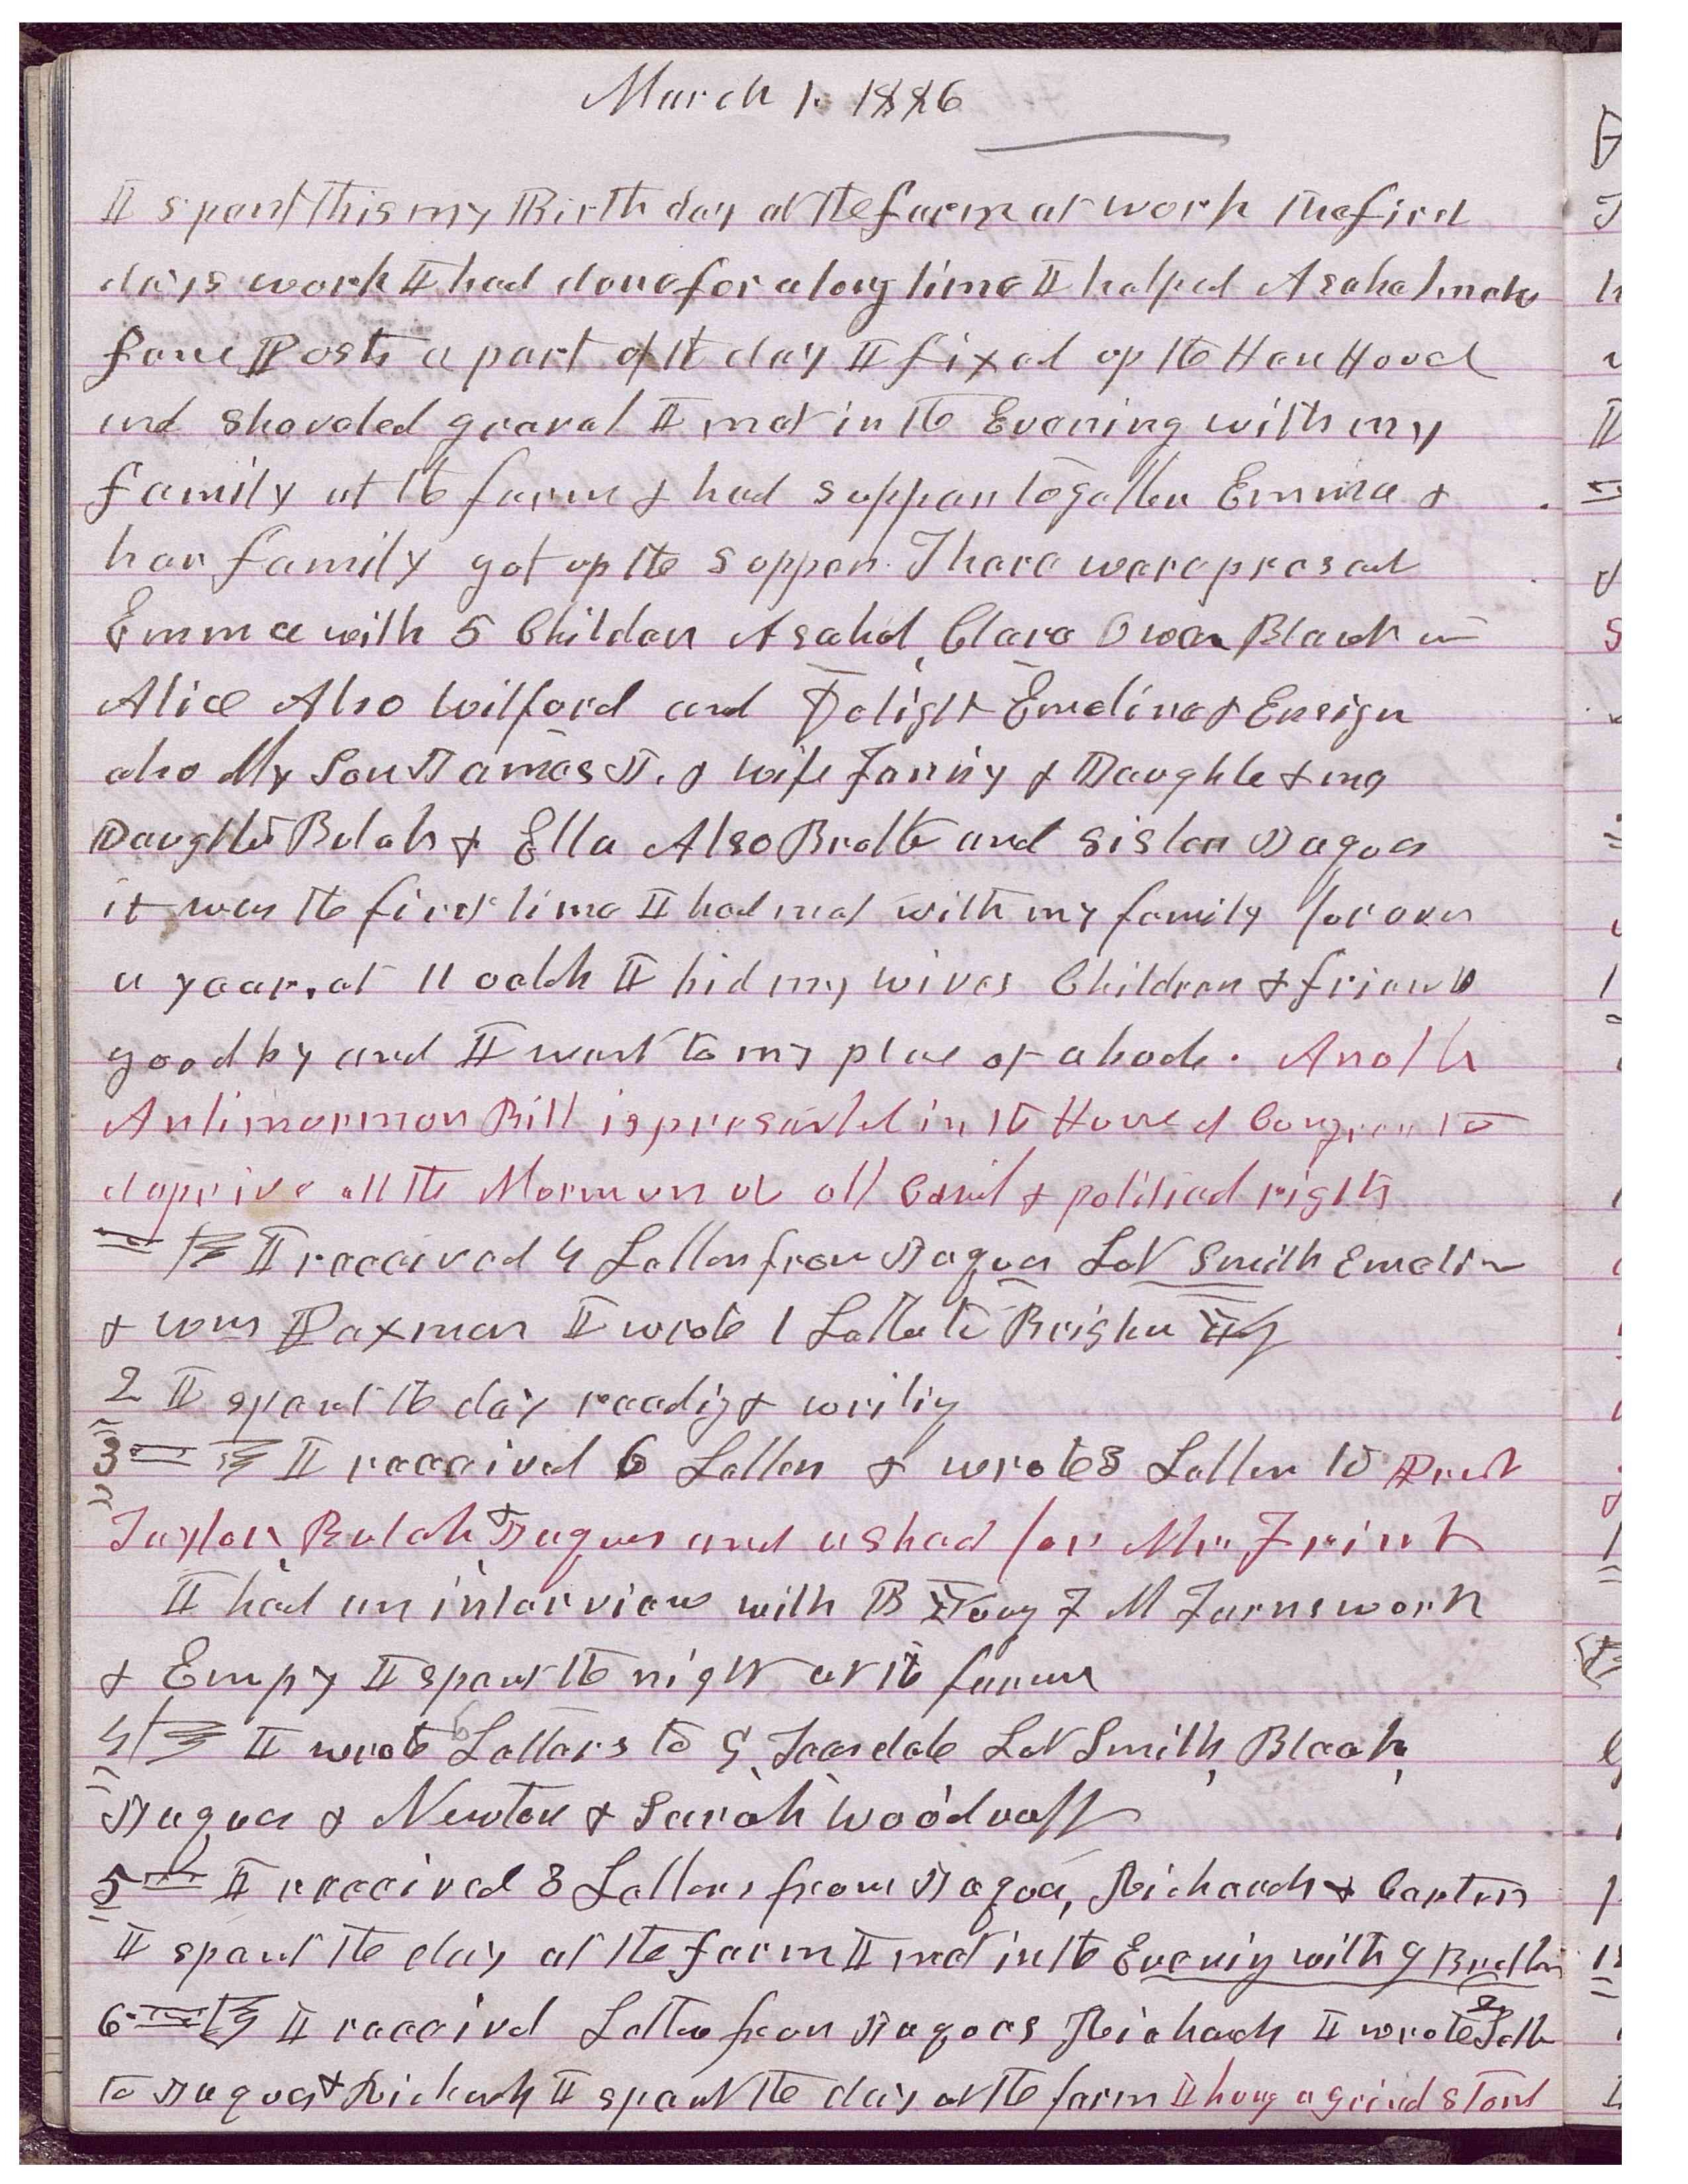 March 1. 1886
I spent this my Birth day at the farm at work the first
days work I had done for a long time I helped Asahel make
fence Posts a part of the day I fixed up the Hen Hovel
and shoveled gravel I met in the Evening with my
family at the farm & had supper together Emma &
her family got up the supper. There were present
Emma with 5 Childen Asahel, Clara Owen Blanch
Alice Also Wilford and Delight Emeline & Ensign
also My Son James J. & wife Fanny & Daughter & my
Daughter Bulah & Ella Also Brother and sister Jaques
it was the first time I had met with my family for over
a year. at 11 oclok I bid my wives Children & friends
good by and I went to my place of abode. Another
Antimormon Bill is presented in the House of Congress to
deprive all the Mormon of all Civil & political rights
I received 4 Letters from Jaques Lot Smith Emeline
& Wm Paxman I wrote 1 Letter to Brigham
2 I spent the day reading & writing
3 I received 6 Letters & wrote 3 Letters to Prest
Taylor, Bulah, & Jaques and ashed for Mrs
I had an interview with B Young F M Farnsworth
& Empy I spent the night at the farm
4 I wrote 6 Letters to G. Teasdale Lot Smith, Bleak,
Jaques & Newton & Sarah Woodruff
5 I received 3 Letters from Jaques, Richards & Canton
I spent the day at the farm I met in the Evening with 9 Brethren
6 I received Letters from Jaques Richards I wrote 2 Letters
to Jaques & Richards I spent the day at the farm I hung a grind stone